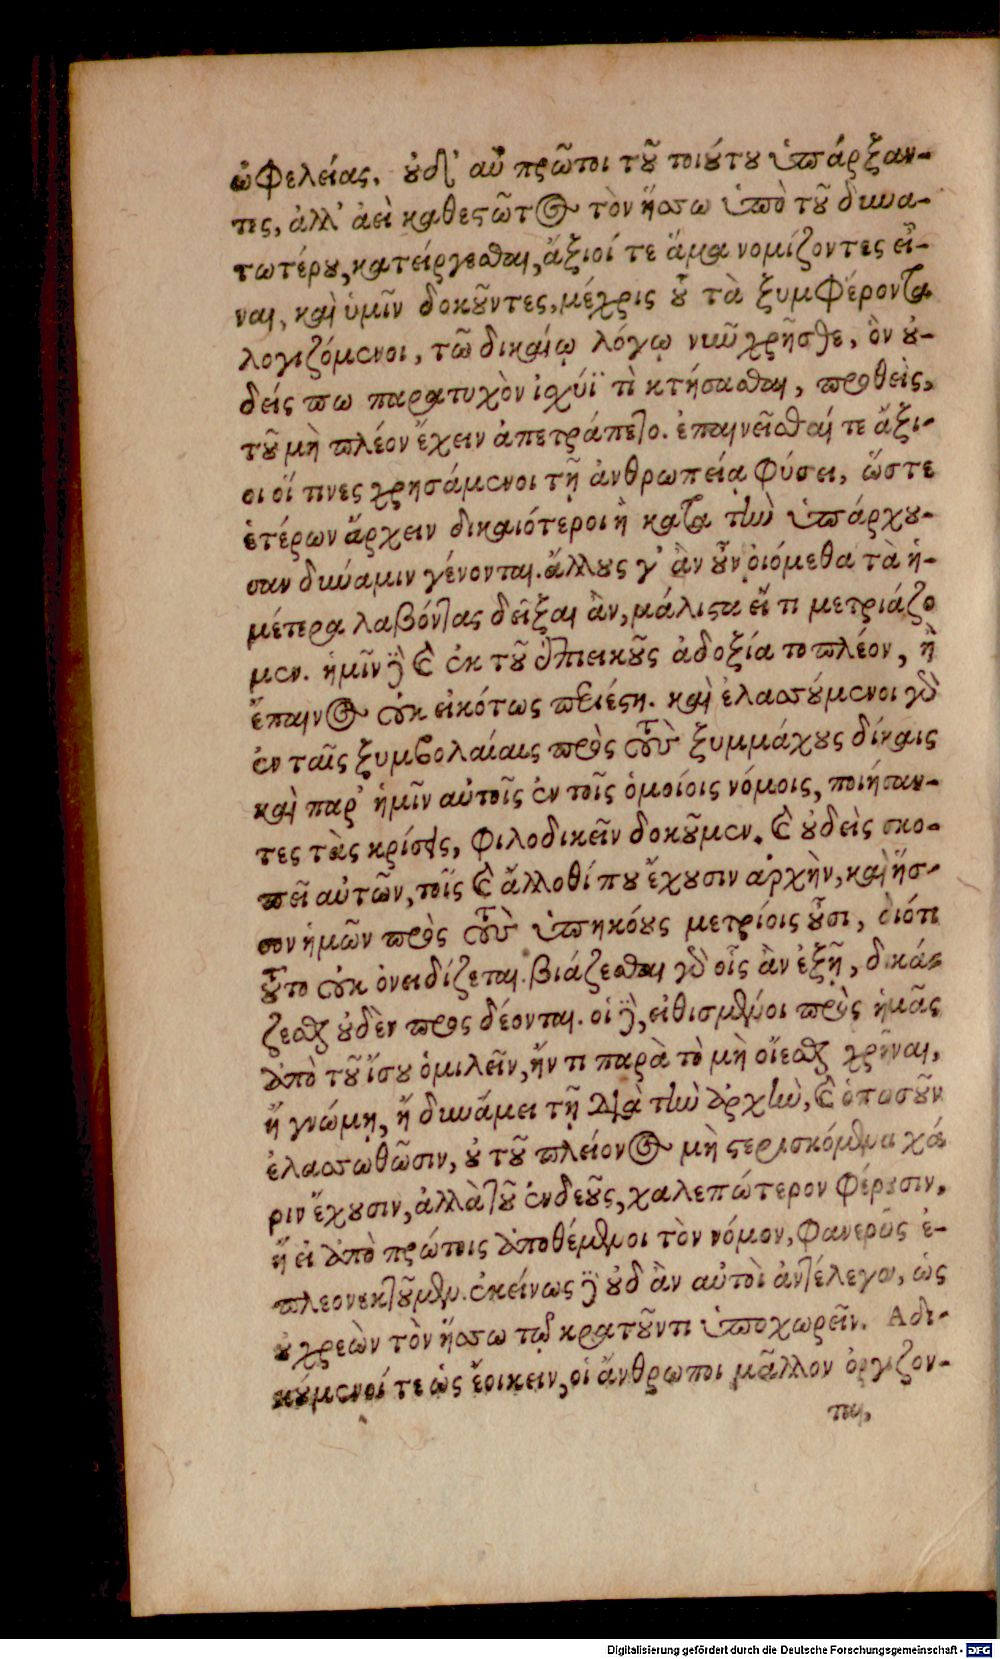 ὠφελείας. οὐδ' αὖ πρῶτοι τοῦ τοιούτου ὑπάρξαν-
τες, ἀλλ' ἀεὶ καθεστῶτος τὸν ἥσσω ὑπὸ τοῦ δυνα-
τωτέρου, κατείργεσθαι, ἄξιοί τε ἅμα νομίζοντες εἶ-
ναι, καὶ ὑμῖν δοκοῦντες, μέχρις οὗ τὰ ξυμφέροντα
λογιζόμενοι, τῷ δικαίῳ λόγῳ νῦν χρῆσθε, ὃν οὐ-
δείς πω παρατυχὸν ἰσχύϊ τὶ κτήσασθαι, προθεὶς,
τοῦ μὴ πλέον ἔχειν ἀπετράπετο. ἐπαινεῖσθαί τε ἄξι-
οι οἵ τινες χρησάμενοι τῇ ἀνθρωπείᾳ φύσει, ὥστε
ἑτέρων ἄρχειν δικαιότεροι ἢ κατὰ τὴν ὑπάρχου-
σαν δύναμιν γένονται. ἄλλους γ' ἂν οὖν οἰόμεθα τὰ ἡ-
μέτερα λαβόντας δεῖξαι ἂν, μάλιστα εἴ τι μετριάζο
μεν. ἡμῖν δὲ καὶ ἐκ τοῦ ἐπιεικοῦς ἀδοξία το πλέον, ἢ
ἔπαινος οὐκ εἰκότως περιέστη. καὶ ἐλασσούμενοι γὰρ
ἐν ταῖς ξυμβολαίαις πρὸς τοὺς ξυμμάχους δίκαις
καὶ παρ' ἡμῖν αὐτοῖς ἐν τοῖς ὁμοίοις νόμοις, ποιήσαν-
τες τὰς κρίσεις, φιλοδικεῖν δοκοῦμεν. καὶ οὐδεὶς σκο-
πεῖ αὐτῶν, τοῖς καὶ ἄλλοθί που ἔχουσιν ἀρχὴν, καὶ ἧσ-
σον ἡμῶν πρὸς τοὺς ὑπηκόους μετρίοις οὖσι, διότι
τοῦτο οὐκ ὀνειδίζεται. βιάζεσθαι γὰρ οἷς ἂν ἐξῇ, δικά-
ζεσθαι οὐδὲν προς δέονται. οἱ δὲ, εἰθισμένοι πρὸς ἡμᾶς
ἀπὸ τοῦ ἴσου ὁμιλεῖν, ἤν τι παρὰ τὸ μὴ οἴεσθαι χρῆναι,
ἢ γνώμῃ, ἢ δυνάμει τῇ διὰ τὴν ἀρχὴν, καὶ ὁπωσοῦν
ἐλασσωθῶσιν, οὐ τοῦ πλείονος μὴ στερισκόμενοι χά
ριν ἔχουσιν, ἀλλὰ τοῦ ἐνδεοῦς, χαλεπώτερον φέρουσιν,
ἢ εἰ ἀπὸ πρώτοις ἀποθέμενοι τὸν νόμον, φανερῶς ἐ-
πλεονεκτοῦμεν. ἐκείνως δὲ οὐδ ἂν αὐτοὶ ἀντέλεγον, ὡς
οὐ χρεὼν τὸν ἥσσω τῷ κρατοῦντι ὑποχωρεῖν. Αδι-
κούμενοί τε ὡς ἔοικειν, οἱ ἄνθρωποι μᾶλλον ὀργίζον-
ται,
Digitalisierung gefördert durch die Deutsche Forschungsgemeinschaft - DFG